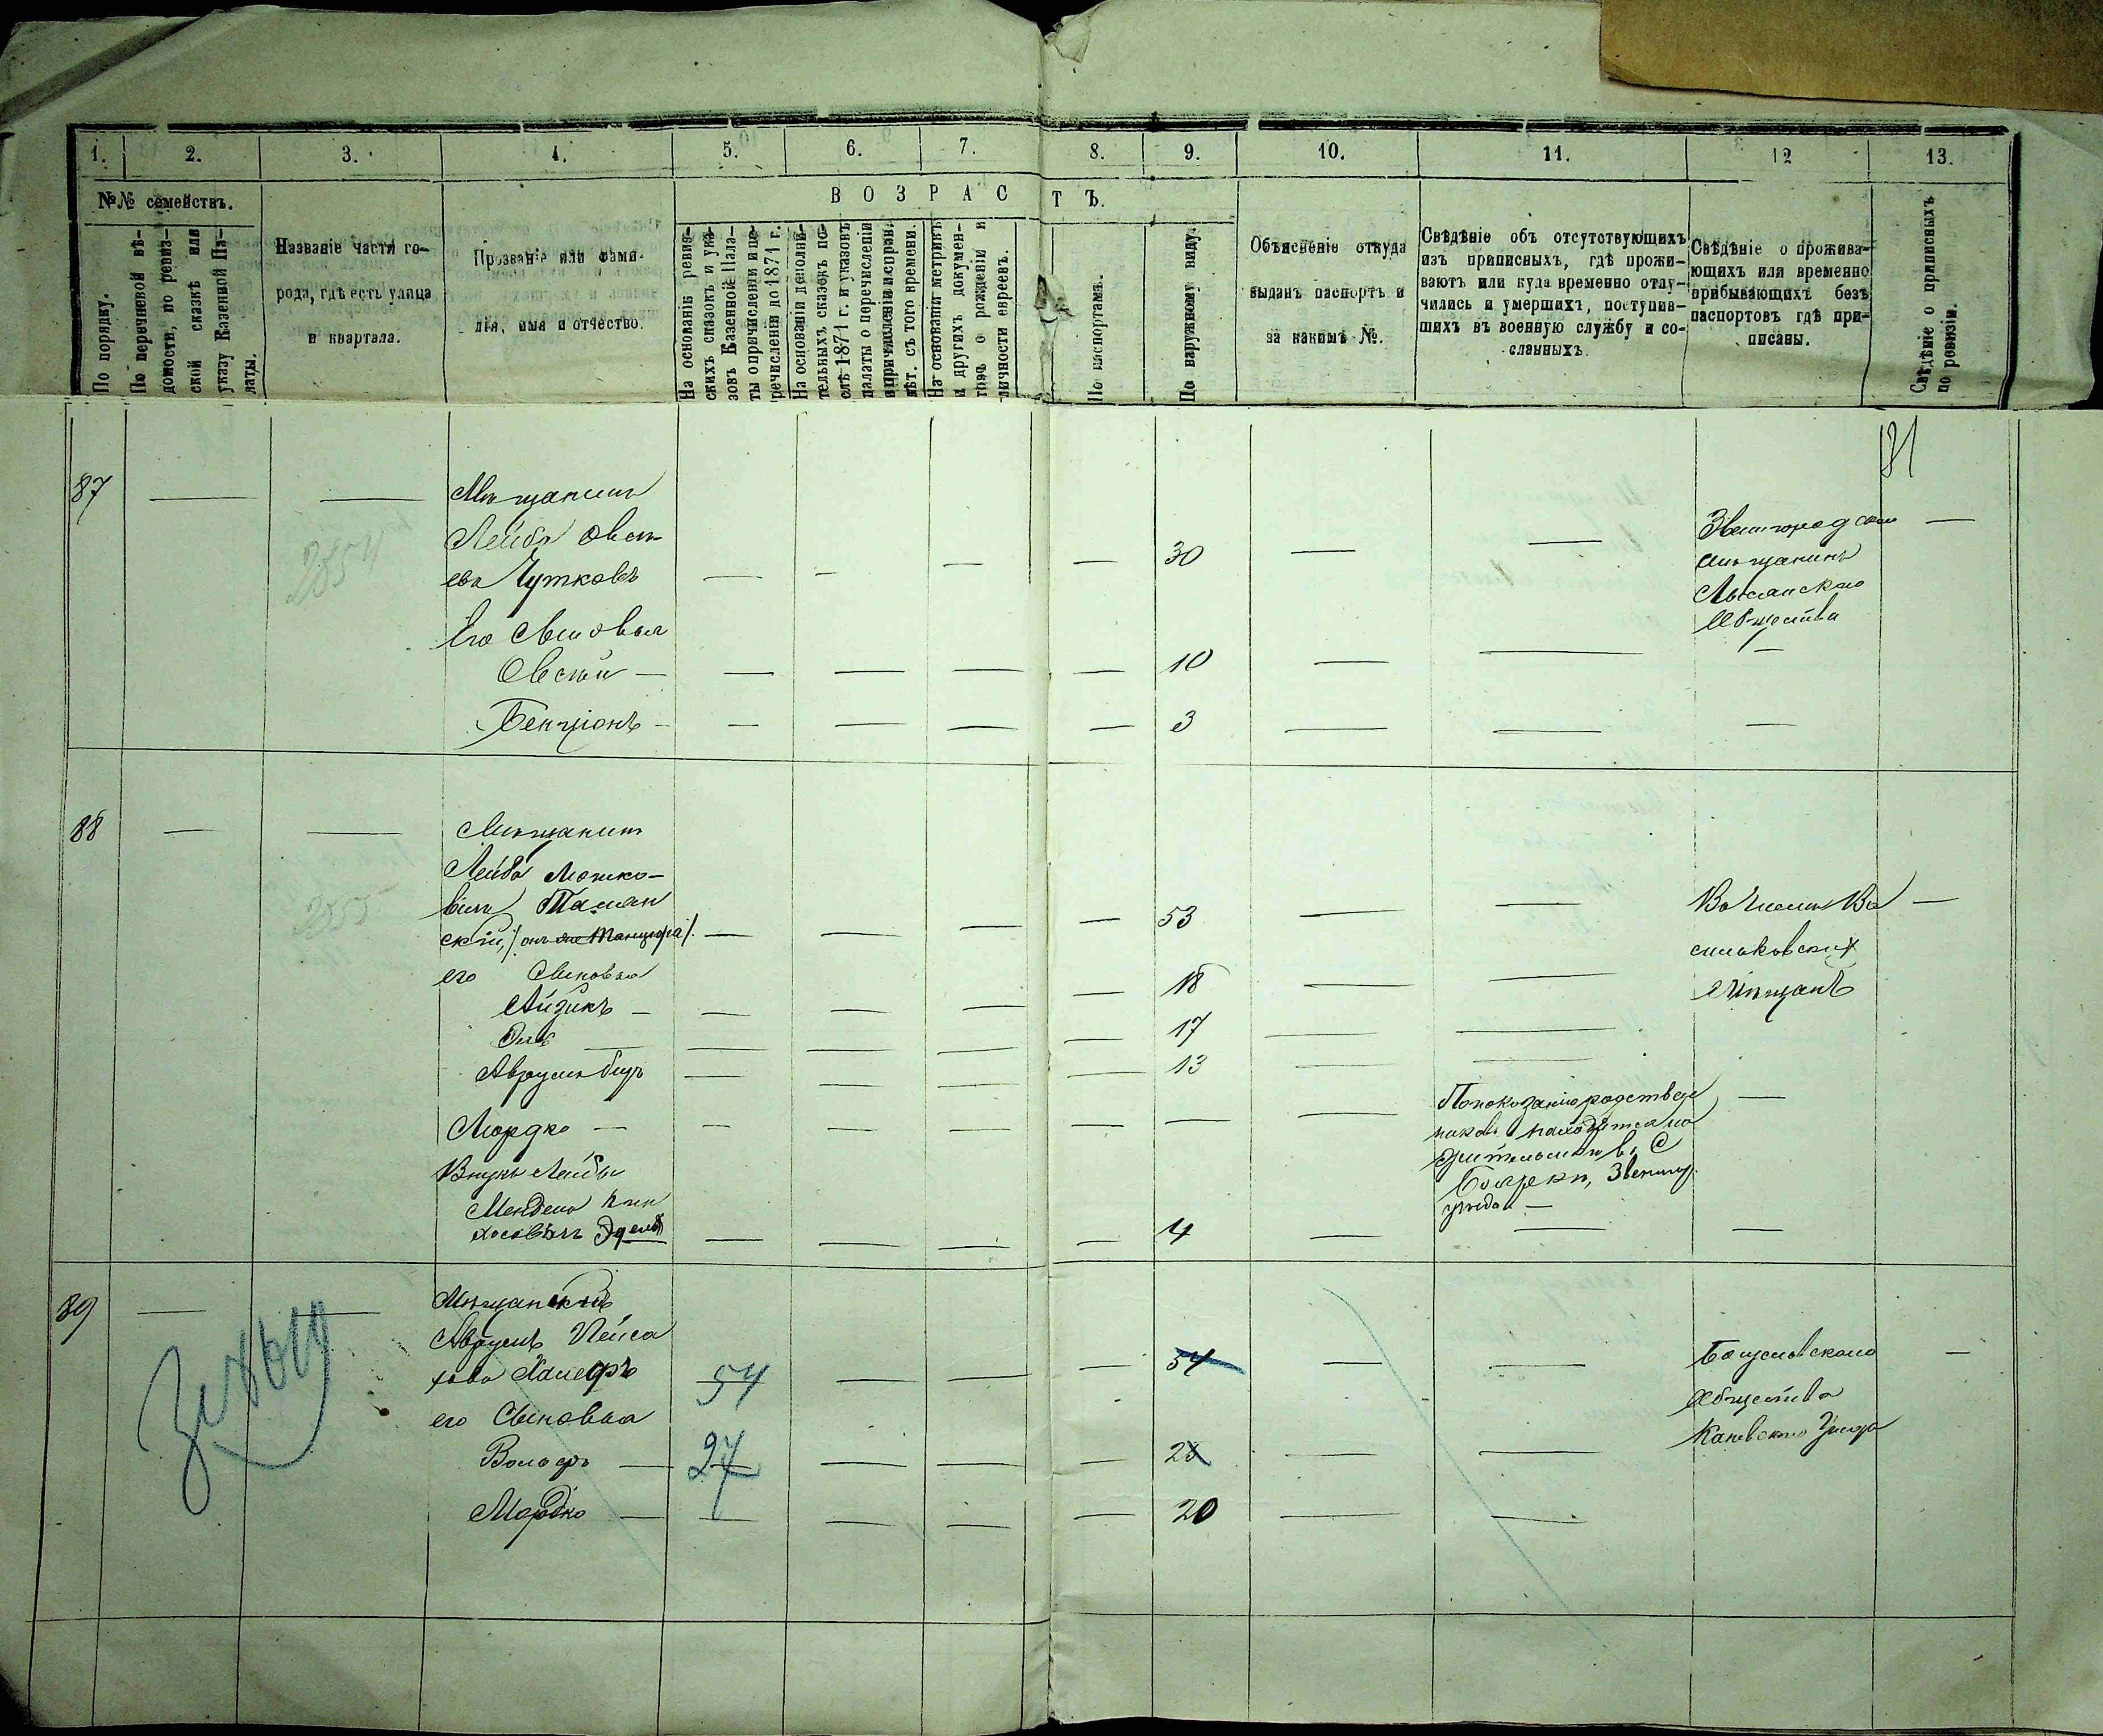 1.
2.
3.
4.
5.
6.
7.
8.
9.
10.
11.
12
13.
№№ семействъ.
ВОЗРАСТЪ.
По порядку.
По перечневой вѣ-
домости, по ревиз-
ской сказкѣ или
указу Казенной Па-
латы.
Названіе части го-
рода, гдѣ есть улица
и квартала.
Прозваніе или фами-
лія, имя и отчество.
На основаніи ревиз-
скихъ сказокъ и ука-
зовъ Казенной Пала-
ты о причисленіи и пе-
речисленіи до 1871 г.
На основаніи дополни-
тельныхъ сказокъ по-
слѣ 1871 г. и указовъ
палаты о перечисленіи
и причисленіи и справ.
лѣт. съ того времени.
На основаніи метрикъ
и другихъ докумен-
товъ о рожденіи и
личности евреевъ.
По паспортамъ.
По наружному виду.
Объясненіе откуда
выданъ паспортъ и
за какимъ №.
Свѣдѣніе объ отсутствующихъ
изъ приписныхъ, гдѣ прожи-
ваютъ или куда временно отлу-
чились и умершихъ, поступив-
шихъ въ военную службу и со-
сланныхъ.
Свѣдѣніе о прожива-
ющихъ или временно
прибывающихъ безъ
паспортовъ гдѣ при-
писаны.
Свѣдѣніе о приписныхъ
по ревизіи.
31
87
2854
Мѣщанинъ
Лейба Овсѣ-
евъ Чутковъ
30
Звенигородскій
мѣщанинъ
Лысянскаго
Общества
Его Сыновья
Овсѣй — 10
Бенціонъ — 3
88
2855
Мѣщанинъ
Лейба Мошко-
вичъ Таман
скій, /онъ же Танцюра/.
53
Въ числѣ Ва
сильковскихъ
мѣщанъ
его Сыновья
Айзикъ — 18
17
Аврумъ 13
Мордко —
По показанію родствен
никовъ находится на
жительствѣ въ С
Боярки, Звениг.
уѣзда —
Внукъ Лейбы
Мендель Пин
хосовичъ 4
89
Мѣщанскій
Аврумъ Пейса
54
54
Богуславскаго
Общества
Каневскаго Уѣзда
его Сыновья
Вольфъ — 27
Мордко — 20